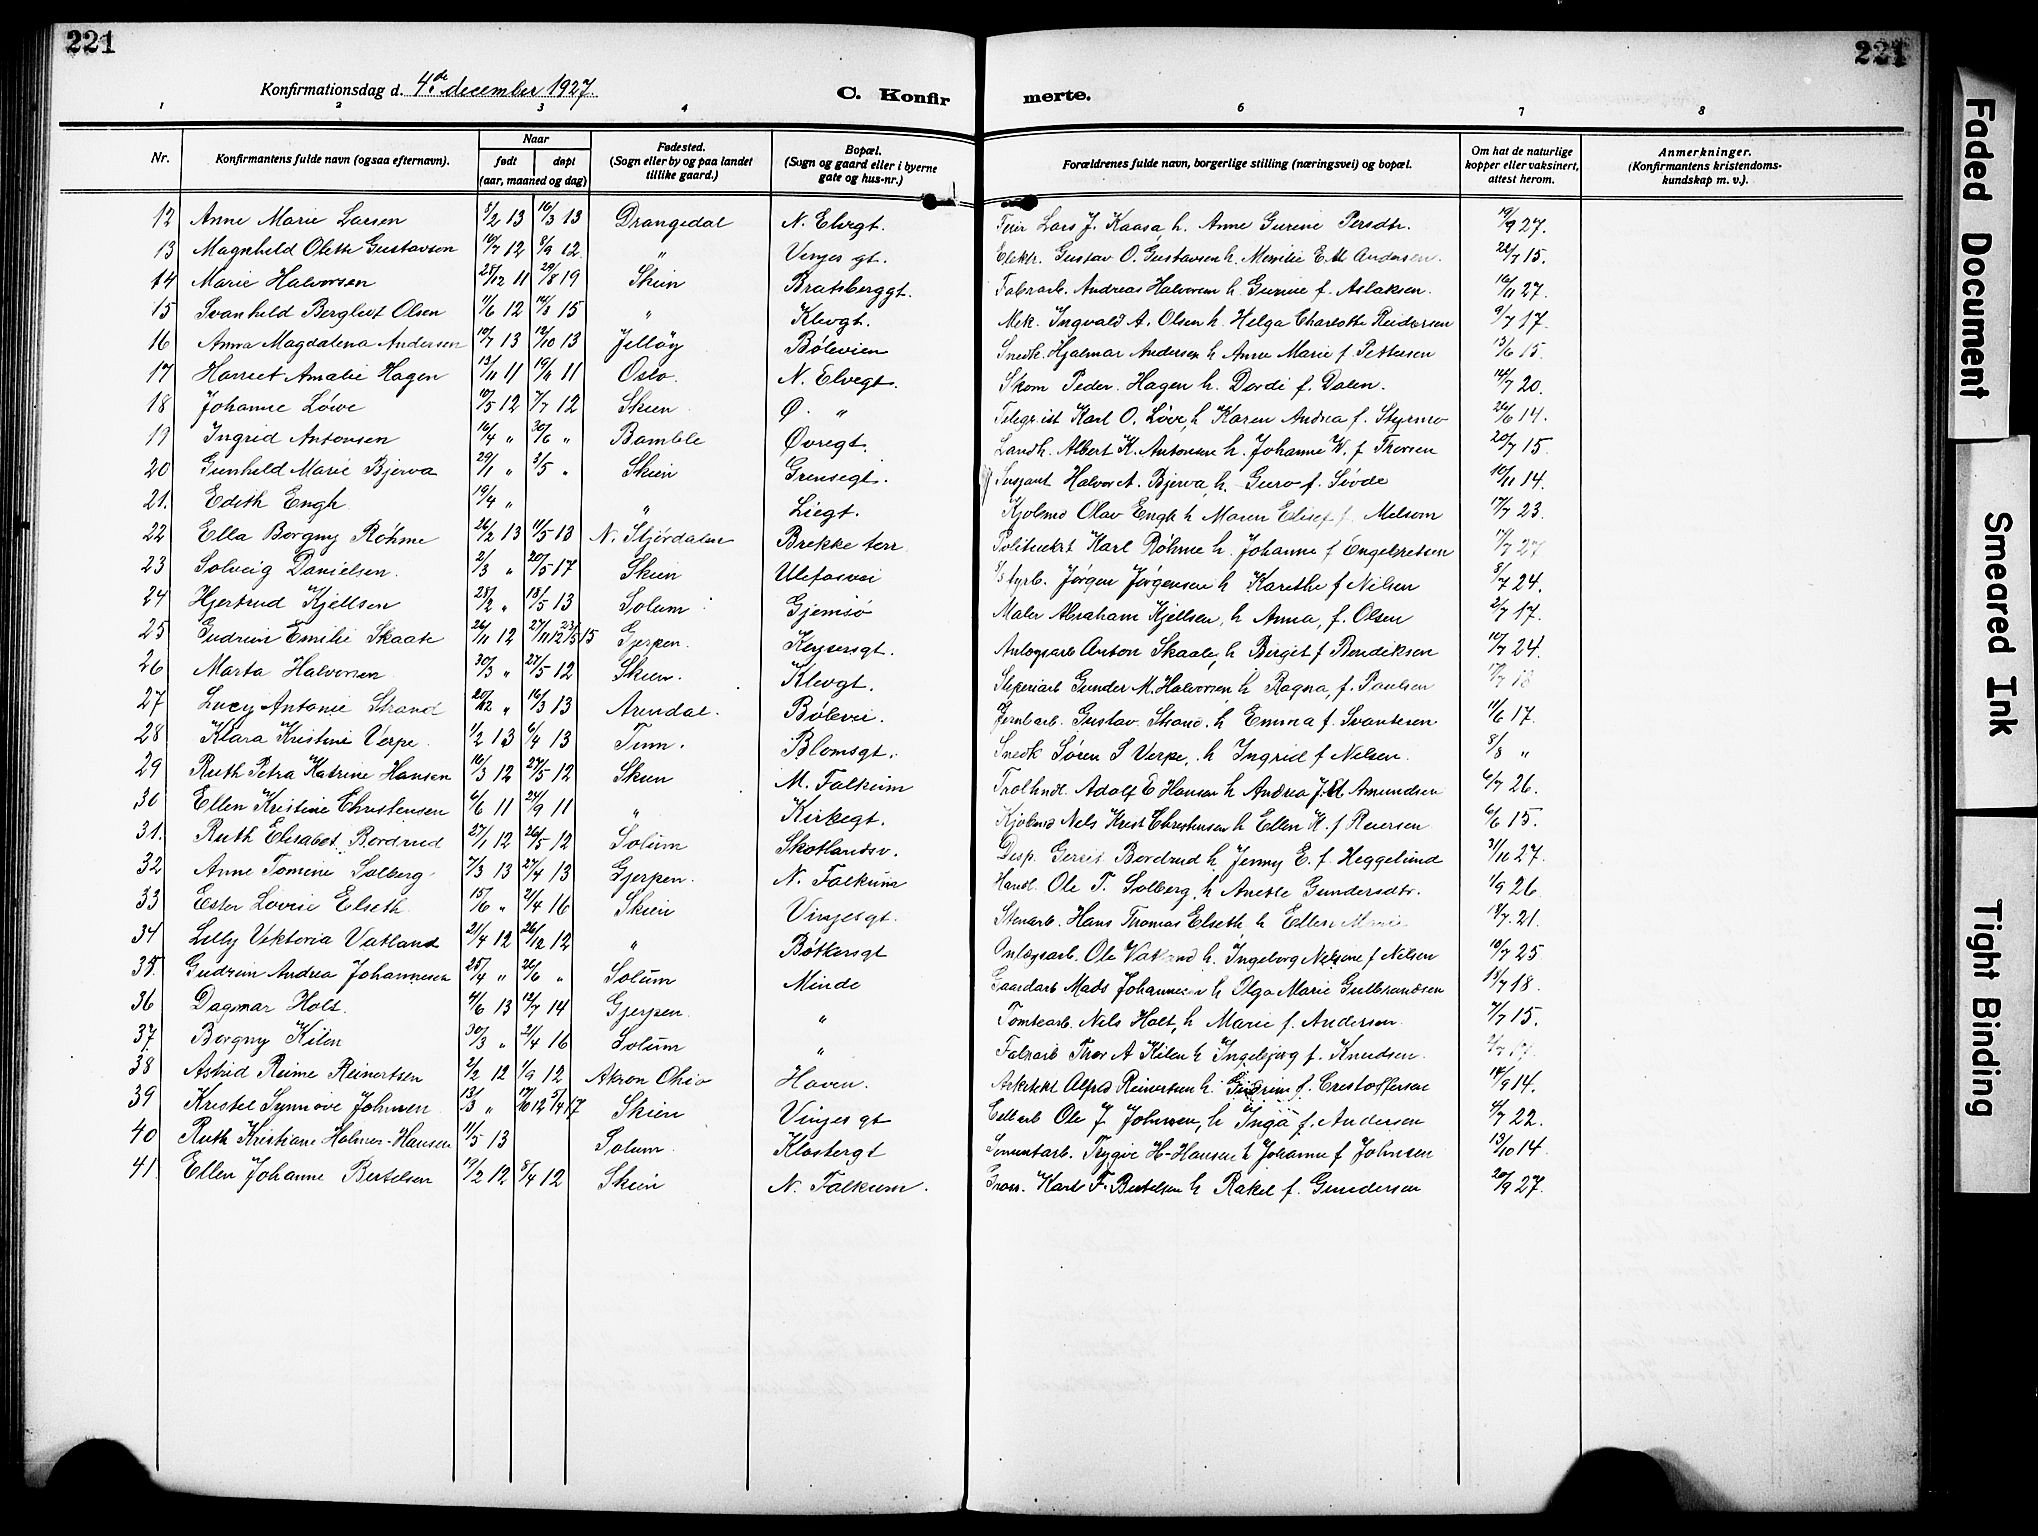 221
221
Konfirmationsdag d. 4de december 1927.
C. Konfirmerte.
1 2 3 4 6 7 8
Nr. Konfirmantens fulde navn (ogsaa efternavn). Naar født døpt (aar, maaned og dag) Fødested. (Sogn eller by og paa landet tillike gaard.) Bopæl. (Sogn og gaard eller i byerne gate og hus-nr.) Forældrenes fulde navn, borgerlige stilling (næringsvei) og bopæl. Om hat de naturlige kopper eller vaksinert, attest herom. Anmerkninger. (Konfirmantens kristendoms-kundskap m. v.).
12 Anne Marie Larsen 8/2 13 16/3 13 Drangedal N. Elvegt. Feier Lars J. Kaasa, h. Anne Gurine Persdtr. 19/9 27.
13 Magnhild Olette Gustavsen 16/7 12 8/9 12 " Vinjes gt. Elektr. Gustav O. Gustavsen h. E. M. Andersen. 28/7 15.
14 Marie Halvorsen 28/12 11 29/8 19 Skien Bratsberggt. Fabrarb. Andreas Halvorsen h. Gurine f. Aslaksen. 16/11 27.
15 Svanhild Bergliot Olsen 11/6 12 14/3 15 " Klevgt. Mek. Ingvald A. Olsen h. Helga Charlotte Reidersen 9/7 17.
16 Anna Magdalena Andersen 10/7 13 12/10 13 Jelløy Bøleveien Snedk. Hjalmar Andersen h Anne Marie f. Pettersen 13/6 15.
17 Harriet Amalie Hagen 13/11 11 19/11 11 Oslo. N. Elvegt. Skom Peder Hagen h. Dordi f. Dalen. 14/7 20.
18 Johanne Løwe 10/5 12 7/7 12 Skien Ø. " Telegr.ist Karl O. Løve, h Karen Andrea f. Styrmo 26/6 14.
19 Ingrid Antonsen 16/4 " 30/6 " Bamble Øvregt. Landh. Albert K. Antonsen h. Johanne W. f Thorsen 20/7 15.
20 Gunhild Marie Bjerva 29/1 " 3/5 " Skien Grensegt. Sersjant Halvor A. Bjerva, h. Guro f. Søvde 10/11 14.
21. Edith Engh 19/4 " " Liegt. Kjøbmd Olav Engh h Maren Elisef f. Melsom 17/7 23.
22 Ella Borgny Røhme 26/2 13 11/5 13 N. Stjørdalen Brekke terr Karl Røhme h. Johanne f Engebretsen 17/7 27
23 Solveig Danielsen. 2/3 " 20/5 17 Skien Ulefosvei Styrb. Jørgen Jørgensen h Karethe f Nilsen 8/7 24.
24 Hjertrud Kjellsen 28/2 " 18/5 13 Solum Gjemsø Maler Abraham Kjellsen, h Anna, f. Olsen 2/7 17.
25 Gudrun Emilie Skaate 26/11 12 27/11 12 23/5 15 Gjerpen. Keysersgt. Anlegsarb Anton Skaate, h Birget f Bendiksen 10/7 24.
26 Marta Halvorsen 30/3 " 27/5 12 Skien. Klevgt. Sliperiarb Gunder M. Halvorsen, h Ragna, f. Paulsen
27 Lucy Antonie Strand 20/12 " 16/3 13 Arendal. Bølevei. Jernbarb. Gustav Strand, h Emma f. Svantesen 11/6 17.
28 Klara Kristine Verpe 1/2 13 6/4 13 Tinn. Blomsgt. Snedk Søren S Verpe, h Ingrid f Nilsen. 8/8 "
29 Ruth Petra Katrine Hansen 16/3 12 27/5 12 Skien M. Falkum Adolf E Hansen h Andrea J. M Amundsen 6/7 26.
30 Ellen Kristine Christensen 6/6 11 24/9 11 " Kirkegt. Kjøbmd Nels Krist Christensen h Ellen K. f Reiersen 6/6 15.
31. Ruth Elisabet Bordrud 27/1 12 26/5 12 Solum Skotlandsv. Disp. Bordrud h. Jenny E. f. Heggelund 31/10 27.
32 Anne Tomine Solberg 7/3 13 27/4 13 Gjerpen. N. Falkum Handl. Ole T. Solberg, h Anette Gundersdtr. 1/9 26.
33 Ester Lovise Elseth 15/6 " 2/4 16 Skien Vinjesgt. Stenarb. Hans Thomas Elseth, h Ellen Marie 13/7 21.
34 Lilly Viktoria Vatland 21/4 12 26/12 12 " Bøtkersgt Anlægsarb. Ole Vatland h. Ingeborg Nelsine f Nelsen 10/7 25
35. Gudrun Andrea Johannesen 25/4 " 26/6 " Solum Minde Gaardarb Mads Johannesen h Olga Marie Gulbrandsen 18/7 18.
36 Dagmar Holt. 4/6 13 12/7 14 Gjerpen. " Tomtearb. Nels Holt, h Marie f. Andersen. 7/7 15.
37. Borgny Kilen 30/3 " 21/4 16 Solum " Fabrarb Thor A Kilen h Ingebjørg f. Knudsen.
38 Astrid Reime Reinertsen 2/2 12 1/9 12 Akron Ohio Haven. Arkitekt Alfred Reinertsen h. Gudrun f. Cristoffersen 14/9 14.
39 Kristel Synnøve Johnsen 13/3 " 17/10 12 5/4 17 Skien Vinjes gt Cellarb Ole J Johnsen, h Inga f. Andersen 4/7 22.
40 Ruth Kristiane Holmer-Hansen 11/5 13 Solum. Klostergt Sementarb. Trygve H-Hansen h Johanne f Johnsen 13/10 14.
41 Ellen Johanne Bertelsen 19/2 12 8/4 12 Skien N. Falkum. Gross. Karl F. Bertelsen h Rakel f. Gundersen 20/9 27.
Faded Document
Smeared Ink
Tight Binding